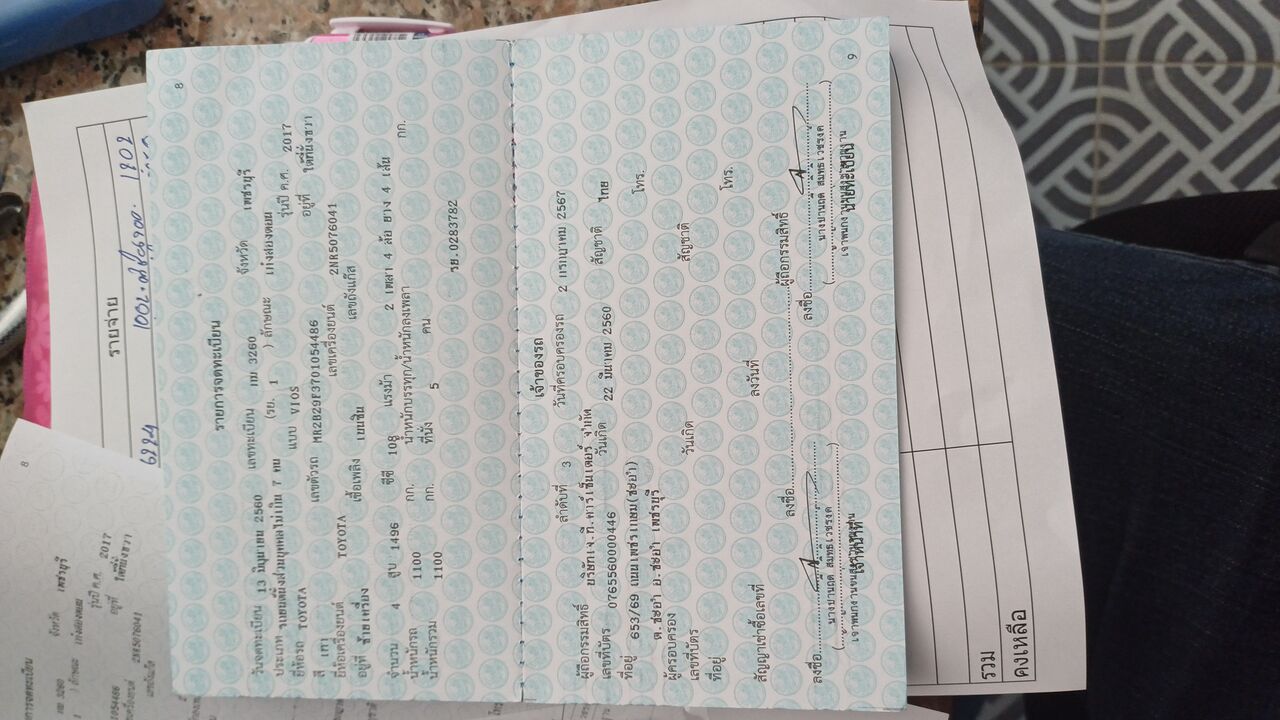 8
รายการจดทะเบียน
วันจดทะเบียน 13 มิถุนายน 2560 เลขทะเบียน กม 3260 จังหวัด เพชรบุรี
ประเภท รถยนต์นั่งส่วนบุคคลไม่เกิน 7 คน (รย. 1 ) ลักษณะ เก๋งสองตอน
ยี่ห้อรถ TOYOTA แบบ VIOS รุ่นปี ค.ศ. 2017
สี เทา เลขตัวรถ MR2B29F3701054486 อยู่ที่ ใต้ที่นั่งขวา
ยี่ห้อเครื่องยนต์ TOYOTA เลขเครื่องยนต์ 2NR5076041
อยู่ที่ ซ้ายเครื่อง เชื้อเพลิง เบนซิน เลขถังแก๊ส
จำนวน 4 สูบ 1496 ซีซี 108 แรงม้า 2 เพลา 4 ล้อ ยาง 4 เส้น
น้ำหนักรถ 1100 กก. น้ำหนักบรรทุก/น้ำหนักลงเพลา กก.
น้ำหนักรวม 1100 กก. ที่นั่ง 5 คน
รย.0283782
เจ้าของรถ
ลำดับที่ 3 วันที่ครอบครองรถ 2 เมษายน 2567
ผู้ถือกรรมสิทธิ์ บริษัทเจ.ที.คาร์เซ็นเตอร์ จำกัด
เลขที่บัตร 0765560000446 วันเกิด 22 มีนาคม 2560 สัญชาติ ไทย
ที่อยู่ 653/69 ถนนเพชรเกษม(ชะอำ) โทร.
ต.ชะอำ อ.ชะอำ เพชรบุรี
ผู้ครอบครอง
เลขที่บัตร วันเกิด สัญชาติ
ที่อยู่ โทร.
สัญญาเช่าซื้อเลขที่ ลงวันที่
ลงชื่อ ผู้ถือกรรมสิทธิ์
ลงชื่อ ลงชื่อ
เจ้าหน้าที่ นายทะเบียน
9
รายจ่าย
6224
1802
รวม
คงเหลือ
8
จังหวัด เพชรบุรี
เก๋งสองตอน
รุ่นปี ค.ศ. 2017
อยู่ที่ ใต้ที่นั่งขวา